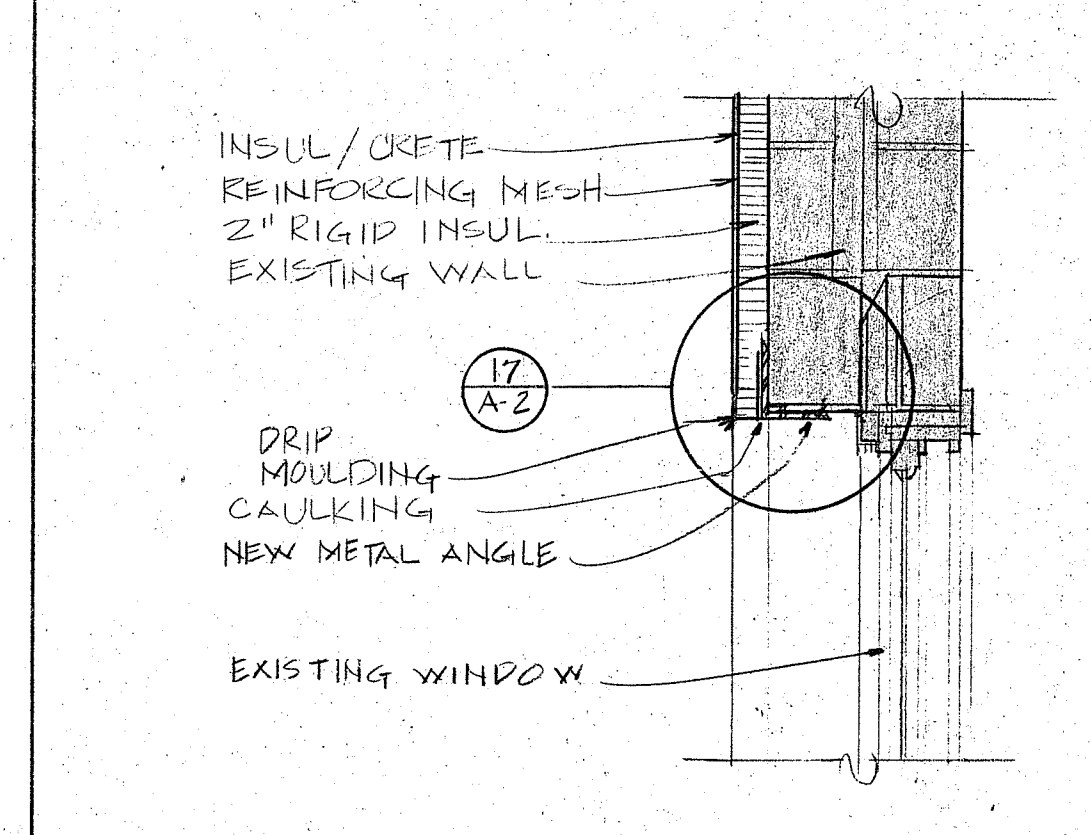 INSUL/CRETE
REINFORCING MESH
2" RIGID INSUL.
EXISTING WALL
17
A-2
DRIP
MOULDING
CAULKING
NEW METAL ANGLE
EXISTING WINDOW